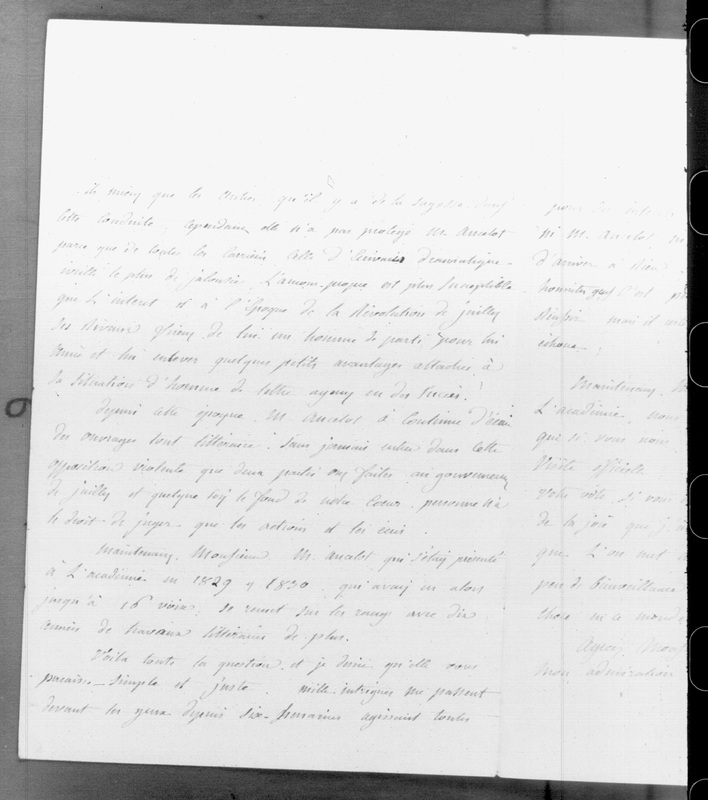 que les autres qu'il y a de la sagesse dans
cette conduite; cependant elle n'a pas protégé M. Ancelot
parce que de toutes les carrières celle d'écrivain dramatique
le plus de jalousie. L'amour-propre est plus susceptible
que l'intérêt et à l'époque de la Révolution de juillet
ses rivaux de lui un homme de parti pour lui
et lui enlever quelques petits avantages attachés à
la situation d'homme de lettres ayant eu des succès!
Depuis cette époque M. Ancelot a continué d'écrire
des ouvrages tout littéraires: sans jamais entrer dans cette
opposition violente que deux partis ont faites au gouvernement
de juillet et quelque soit le fond de notre cœur personne n'a
le droit de juger que les actions et les écrits.
Maintenant, Monsieur, M. Ancelot qui s'était présenté
à L'académie en 1829 et 1830 qui avait eu alors
jusqu'à 16 voix: se remet sur les rangs avec dix
années de travaux littéraires de plus.
Voilà toute la question, et je désire qu'elle vous
paraisse simple et juste. mille intrigues me passent
devant les yeux depuis six semaines agissent toutes
pour
ni M. Ancelot,
d'arriver à
honnêtes gens
mais il
Maintenant,
L'académie, nous
que si vous nous
officielle
votre voix. si vous
de la joie que j'
que l'on met
peu de bienveillance
chose en ce monde
Agréez,
mon admiration